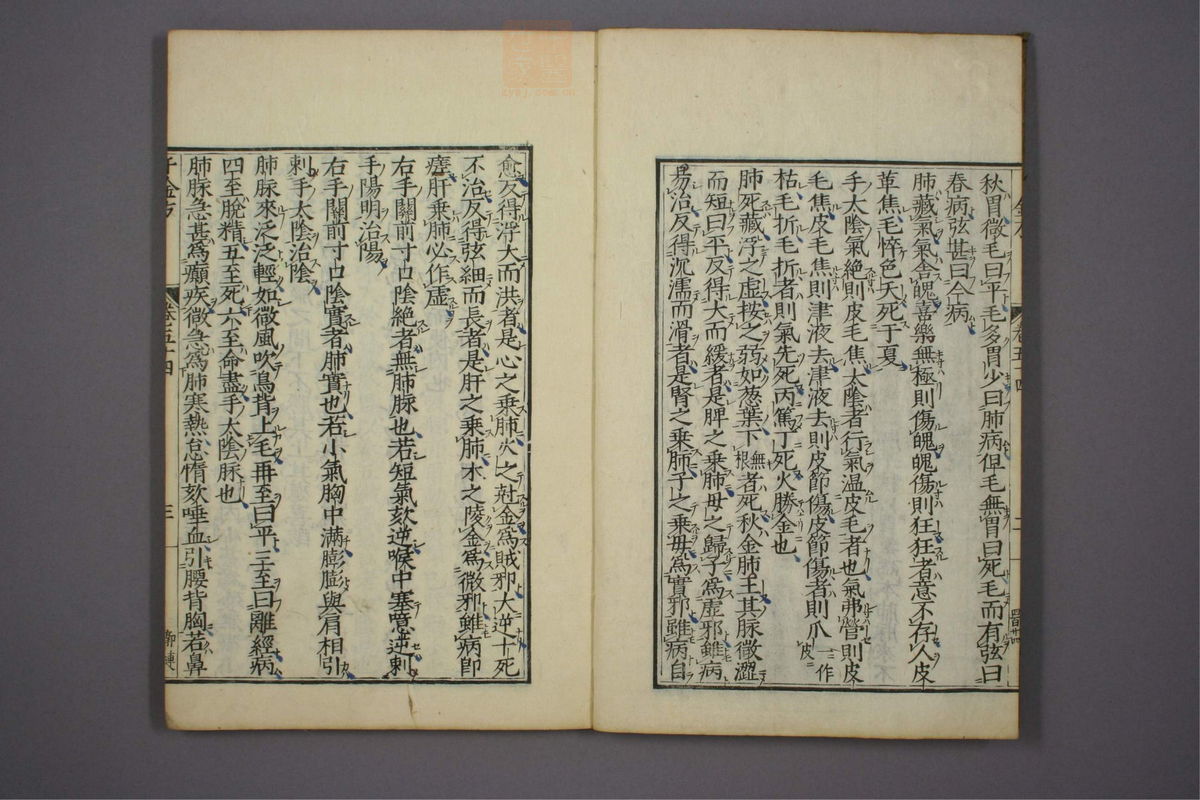 秋胃微毛曰平毛多胃少曰肺病但毛無胃曰死毛而有弦曰
春病弦甚曰今病
肺藏氣氣舍魄喜樂無極則傷魄魄傷則狂狂者意不存人皮
革焦毛悴色夭死于夏
手太陰氣絶則皮毛焦太陰者行氣温皮毛者也氣弗營則皮
毛焦皮毛焦則津液去津液去則皮節傷皮節傷者則爪一作皮
枯毛折毛折者則氣先死丙篤丁死火勝金也
肺死藏浮之虚按之弱如葱葉下無根者死秋金肺王其脉微澀
而短曰平反得大而緩者是脾之乗肺母之歸子爲虚邪雖病
易治反得沉濡而滑者是腎之乗肺子之乗母爲實邪雖病自
愈反得浮大而洪者是心之乗肺火之尅金爲賊邪大逆十死
不治反得弦細而長者是肝之乗肺木之陵金爲微邪雖病即
瘥肝乗肺必作虚
右手關前寸口陰絶者無肺脉也若短氣欬逆喉中塞噫逆刺
手陽明治陽
右手關前寸口陰實者肺實也若小氣胸中滿膨膨與肩相引
刺手太陰治陰
肺脉來泛泛輕如微風吹鳥背上毛再至曰平三至曰離經病
四至脱精五至死六至命盡手太陰脉也
肺脉急甚爲癲疾微急爲肺寒熱怠惰欬唾血引腰背胸若鼻
千金方
卷五十四
三